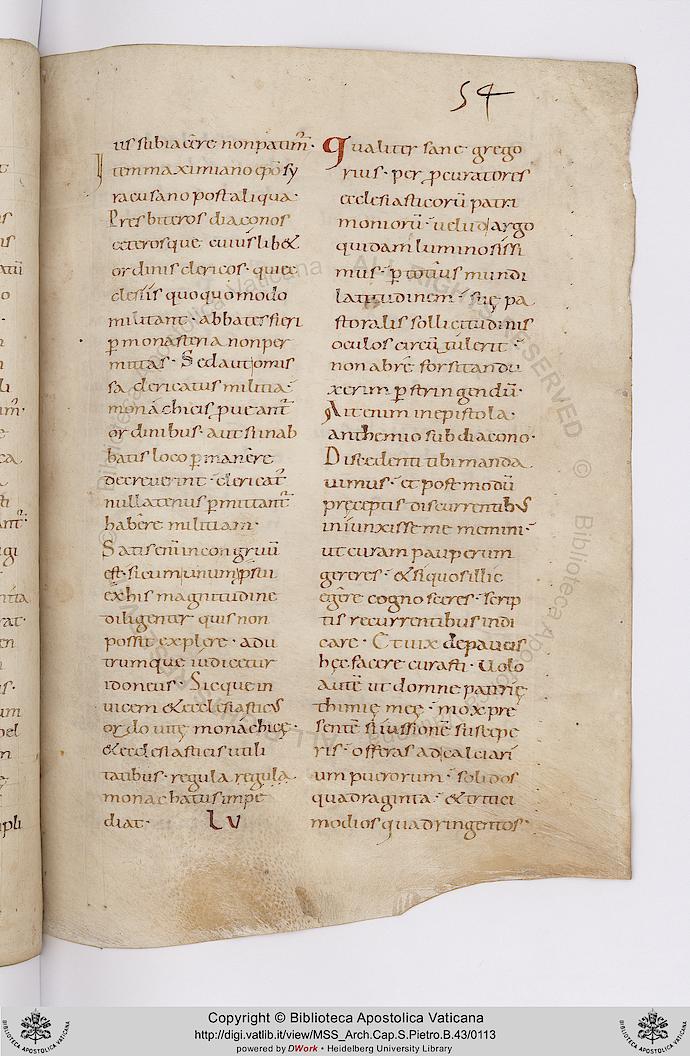 54
us subiacere non patim̅·
Item maximiano ep̅o sy
racusano post aliqua·
Presbiteros diaconos
ceterosque cuius lib&
ordinis clericos· qui ec
clesiis quoquo modo
militant· abbates fieri
p monasteria non per
mittas· Sed aut omis
sa clericatus militia·
monachicis pueant̅
ordinibus· aut si in ab
batis loco pmanere
decreverint· clericat̅
nullatenus pmittant̅
habere militiam·
Satis eni̅ in congruu̅
est· si cum unum ipsui
ex his magnitudine
diligenter quis non
possit explere· ad u
trumque iudicetur
idoneus· Sicque in
uicem & ecclesiasticus
ordo uitę monachicę·
& ecclesiasticis utili
tatibus· regula regula
monachatus impe
diat· LV
Qualiter sane grego
rius· per pcuratores
ecclesiasticoru̅ patri
monioru̅· uelud argo
quidam luminosissi
mus· p totius mundi
latitudinem· suę pa
storalis sollicitudinis
oculos circu̅ tulerit·
non abre forsitan du
xerim pstringendu̅·
Ait enim in epistola·
anthemio subdiacono·
Discedenti tibi manda
uimus· et post modu̅
pręceptis discurrentibus
iniunxisse me memini·
ut curam pauperum
gereres· & si quos illic
egere cognosceres· scrip
tis recurrentibus indi
care· Et uix de paucis
hęc facere curasti· Uolo
aute̅ ut domne paterię
thimię meę· mox pre
sente̅ iussione̅ suscepe
ris· offeras ad calciari
um puerorum· solidos
quadraginta· & tritici
modios quadringentos·
ALL RIGHTS RESERVED
© Biblioteca Apostolica Vaticana
Copyright © Biblioteca Apostolica Vaticana
http://digi.vatlib.it/view/MSS_Arch.Cap.S.Pietro.B.43/0113
powered by DWork · Heidelberg University Library